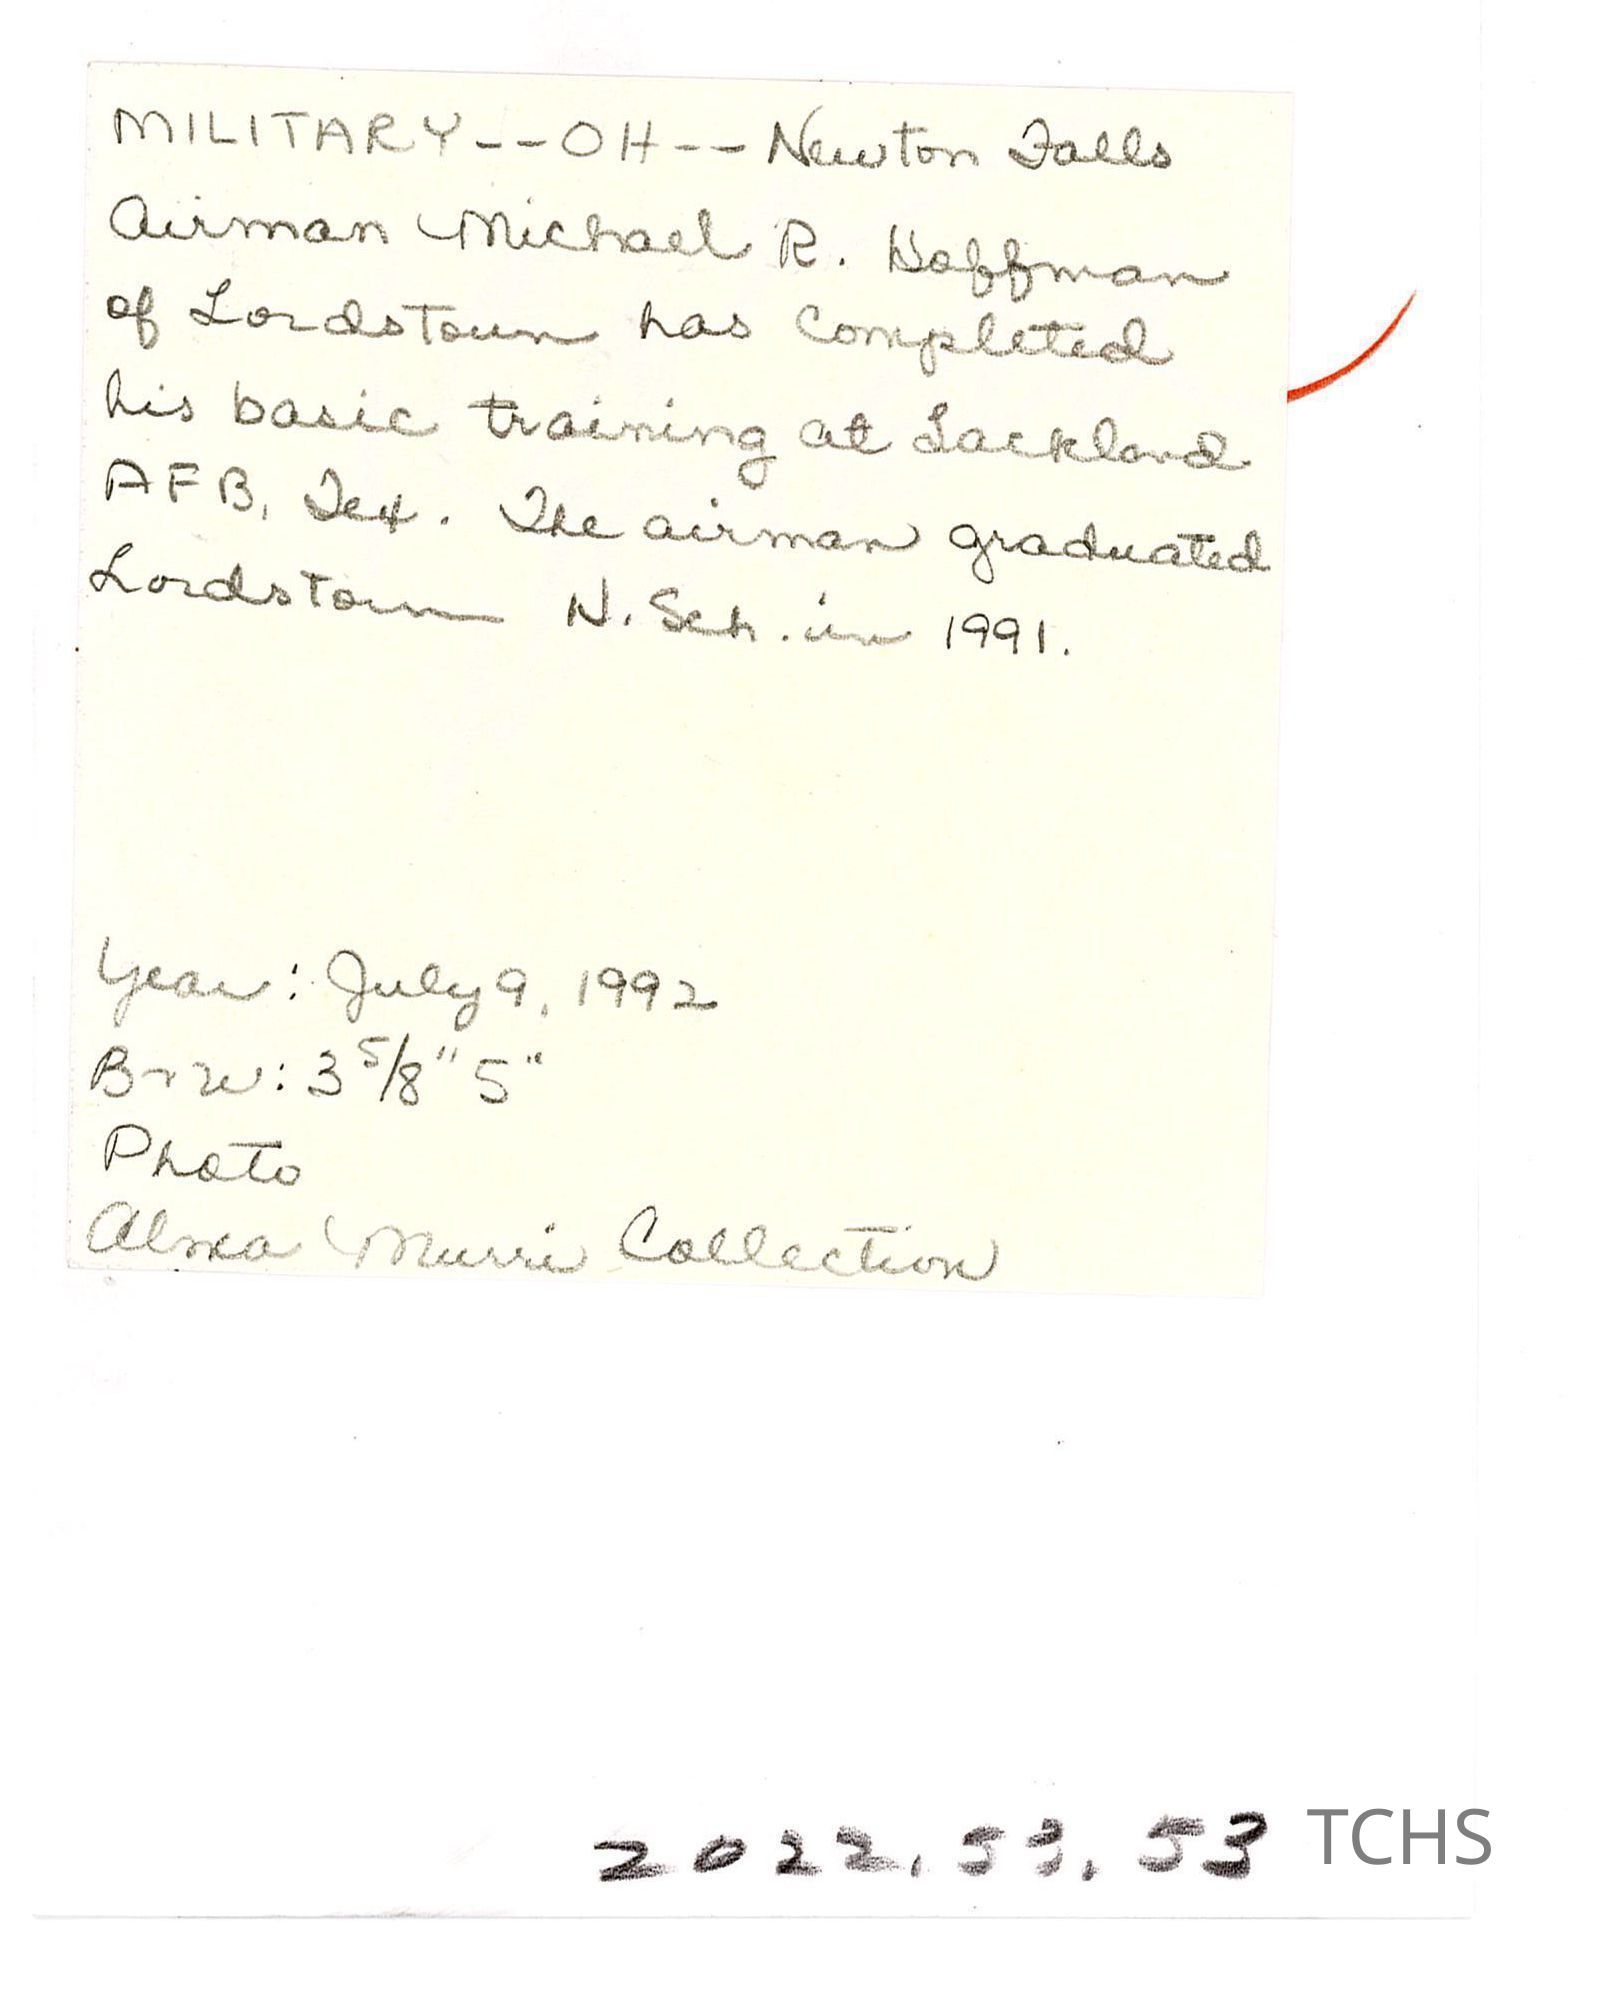 MILITARY--OH--Newton Falls
Airman Michael R. Hoffman
of Lordstown has completed
his basic training at Lackland
AFB, Tex. The airman graduated
Lordstown H. Sch. in 1991.
Year: July 9, 1992
B+W: 3 5/8" 5"
Photo
Alma Murri Collection
2022.53.53 TCHS